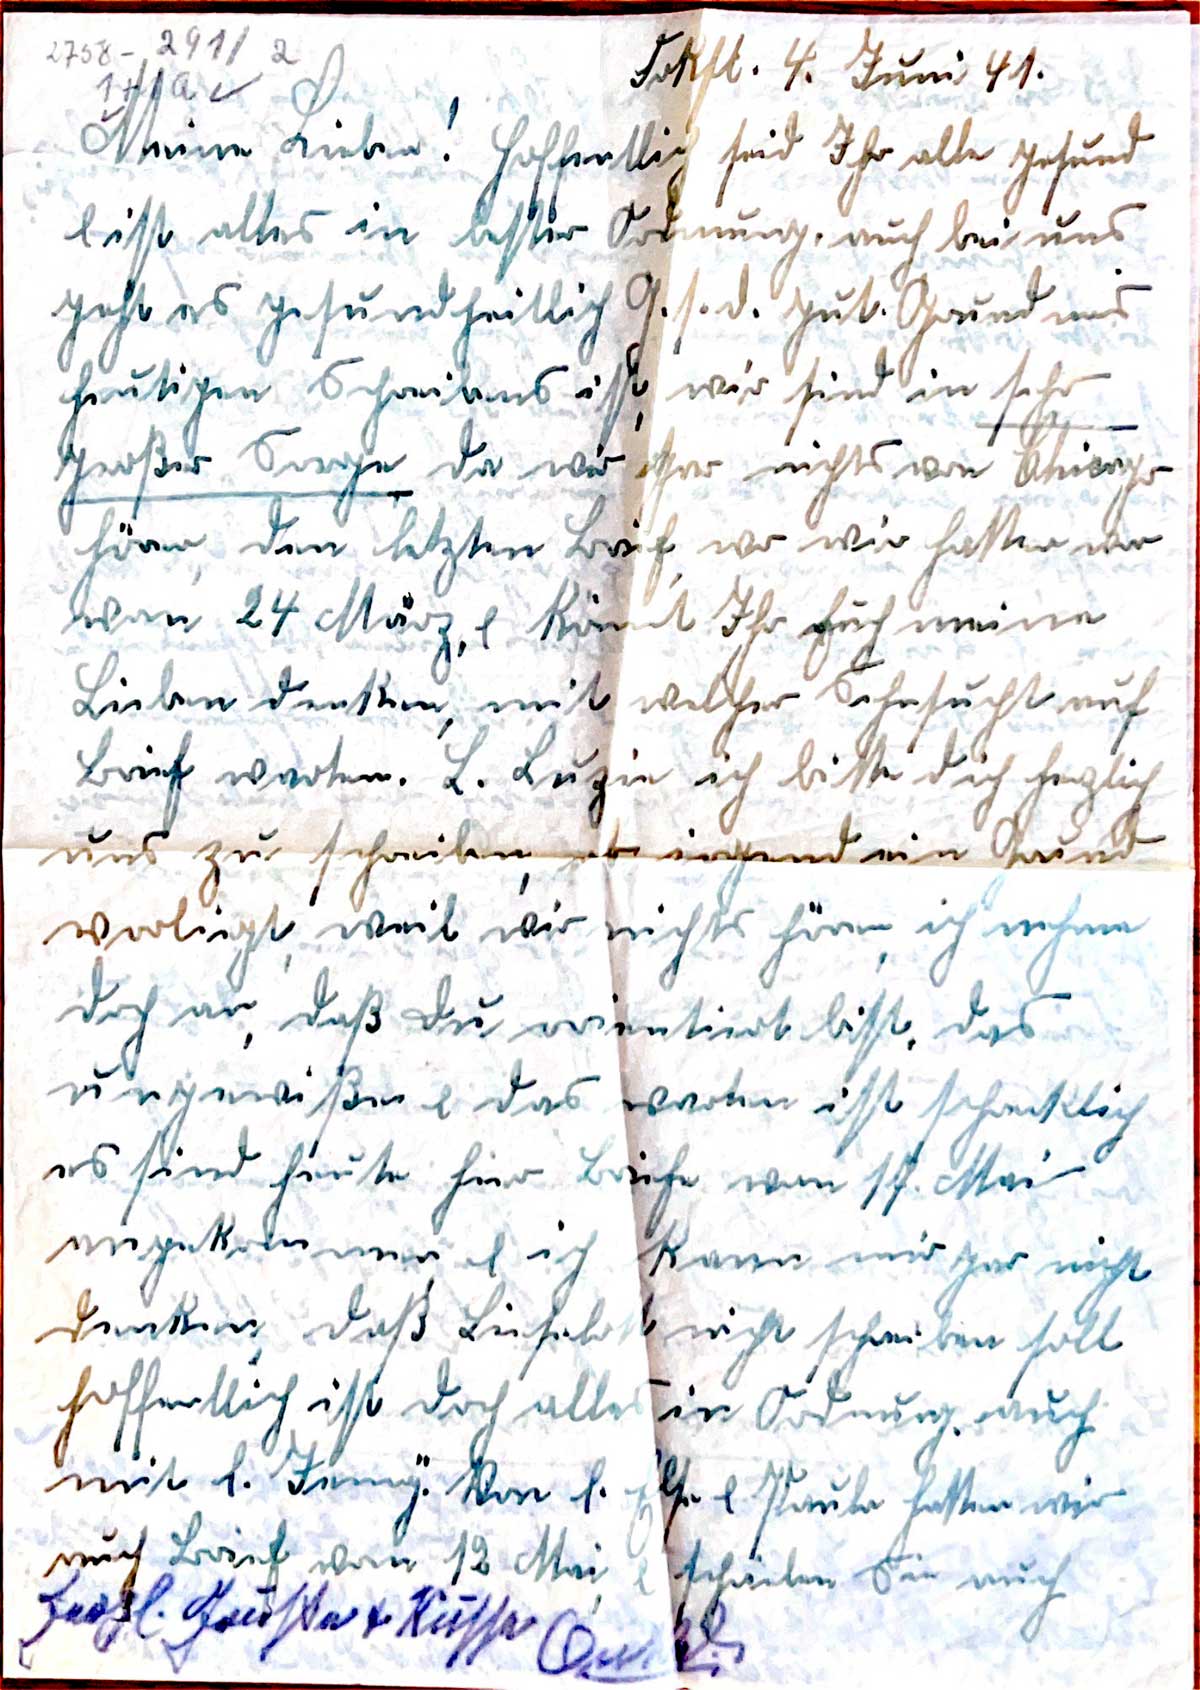 2758-291/2
Fckft. 4. Juni 41.
Meine Lieben! Hoffentlich seid Ihr alle gesund
& ist alles in bester Ordnung. auch bei uns
geht es gesundheitlich G.s.d. gut. Grund
heutigen Schreibens ist, wir sind in sehr
großer Sorge da wir gar nichts von Chicago
hören, den letzten Brief, wo wir hatten war
vom 24 März, & könnt Ihr Euch meine
Lieben denken, mit welcher Sehnsucht auf
Brief warten. L. Luzie ich bitte dich herzlich
uns zu schreiben, ob irgend ein Grund
vorliegt, weil wir nichts hören, ich nehme
doch an, daß du orientiert bist, das
ungewiße & das warten ist schrecklich
es sind heute hier Briefe vom 17. Mai
angekommen & ich kann mir gar nicht
denken, daß Liselott nicht schreiben soll
hoffentlich ist doch alles in Ordnung. auch
mit l. Von l. & Paula hatten wir
auch Brief vom 12 Mai, & schreiben Sie auch
Herzl. Grüße + Küsse